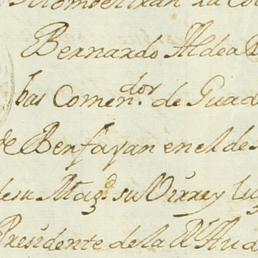 Bernardo Aldea
bas Comen.dor de Guad
de Benfayan en el de
de su Mag.d su Virrey lug
Presidente de la R.l Aud